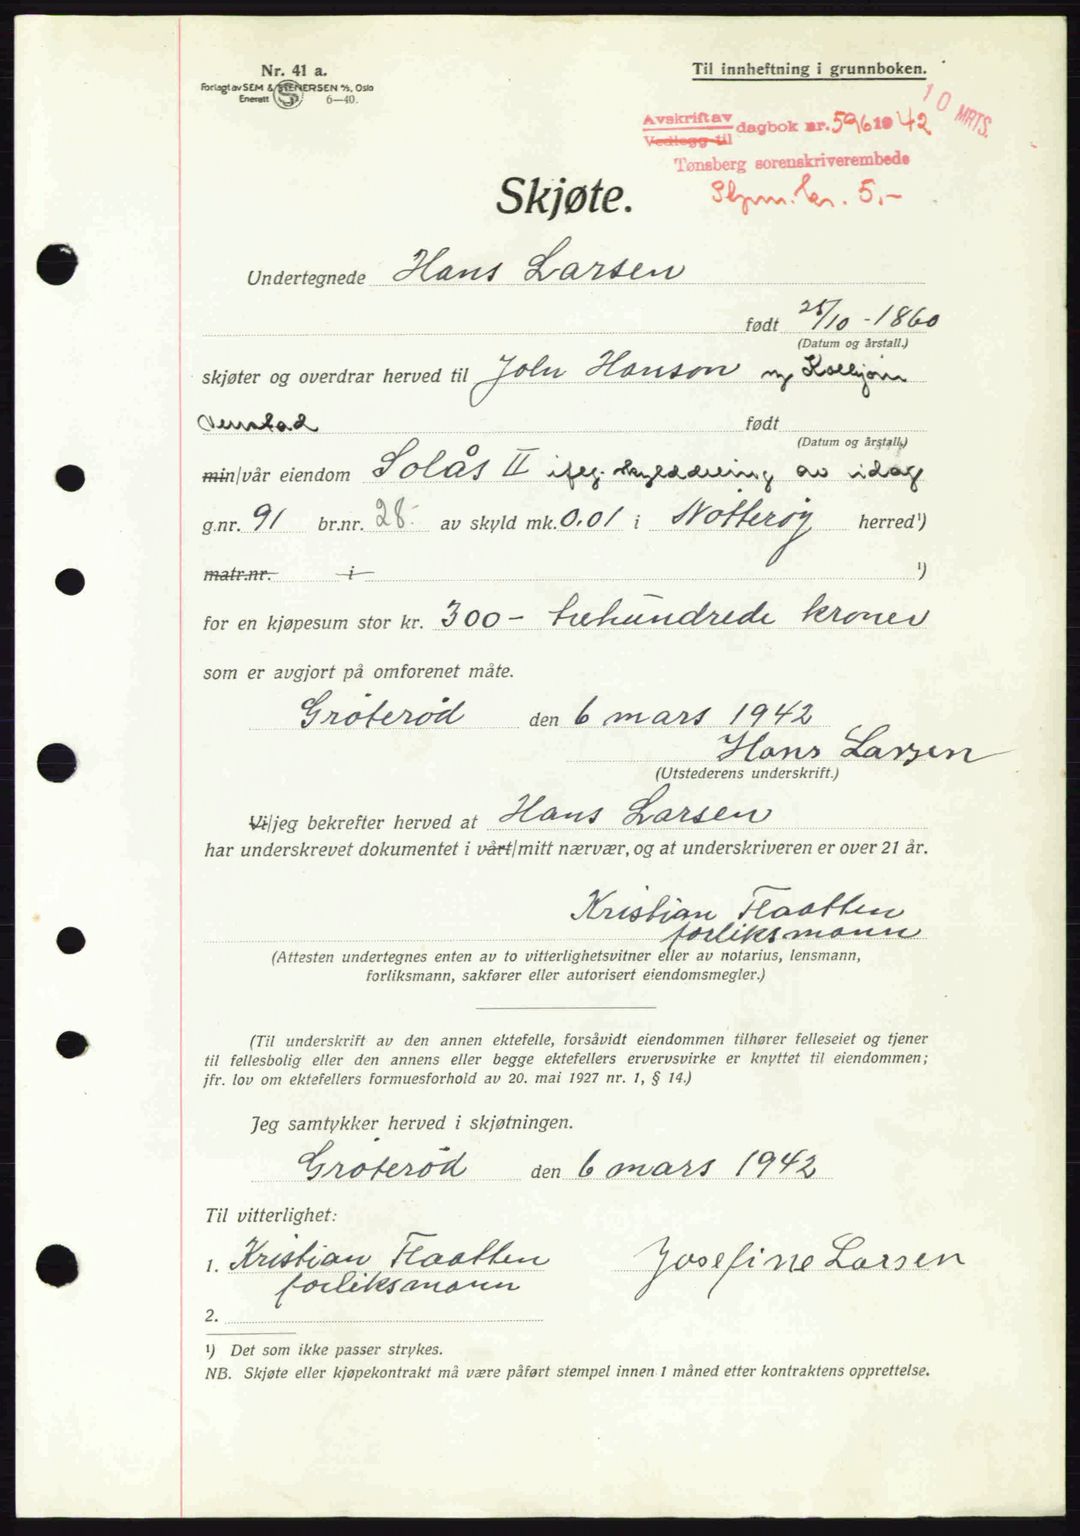 Nr. 41 a.
Forlagt av SEM & STENERSEN A/S, Oslo
Enerett 6-40.
Til innheftning i grunnboken.
10 MRTS.
Avskrift av
Vedlegg til
dagbok nr. 596 19 42
Tønsberg sorenskriverembede
kr. 5,-
Skjøte.
Undertegnede Hans Larsen
født 25/10 - 1860
(Datum og årstall.)
skjøter og overdrar herved til John Hanson og Kolbjørn
født
(Datum og årstall.)
min/vår eiendom Solås II iflg. skylddeling av idag
g.nr. 91 br.nr. 28. av skyld mk. 0.01 i Nøtterøy herred¹)
matr.nr. i ¹)
for en kjøpesum stor kr. 300- trehundrede kroner
som er avgjort på omforenet måte.
Gröteröd den 6 mars 1942
Hans Larsen
(Utstederens underskrift.)
Vi/jeg bekrefter herved at Hans Larsen
har underskrevet dokumentet i vårt/mitt nærvær, og at underskriveren er over 21 år.
Kristian Flaatten
forliksmann
(Attesten undertegnes enten av to vitterlighetsvitner eller av notarius, lensmann,
forliksmann, sakfører eller autorisert eiendomsmegler.)
(Til underskrift av den annen ektefelle, forsåvidt eiendommen tilhører felleseiet og tjener
til fellesbolig eller den annens eller begge ektefellers ervervsvirke er knyttet til eiendommen;
jfr. lov om ektefellers formuesforhold av 20. mai 1927 nr. 1, § 14.)
Jeg samtykker herved i skjøtningen.
Gröteröd den 6 mars 1942
Til vitterlighet:
1. Kristian Flaatten Josefine Larsen
forliksmann
2.
¹) Det som ikke passer strykes.
NB. Skjøte eller kjøpekontrakt må være påført stempel innen 1 måned etter kontraktens opprettelse.